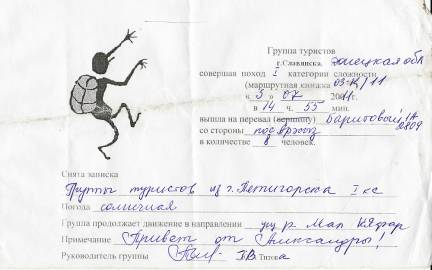 Группа туристов
г.Славянска, Донецкая обл
совершая поход I категории сложности
(маршрутная книжка 03-К/11
« 3 » 07 2011г.
в 14 ч. 55 мин.
вышла на перевал (вершину) Баритовый 1А 2809
со стороны под Архыз
в количестве 8 человек.
Снята записка
Группы туристов из г. Пятигорска I кс
Погода солнечная
Группа продолжает движение в направлении ущ р Мал Кяфар
Примечание Привет от Александры!
Руководитель группы ПВ Титова